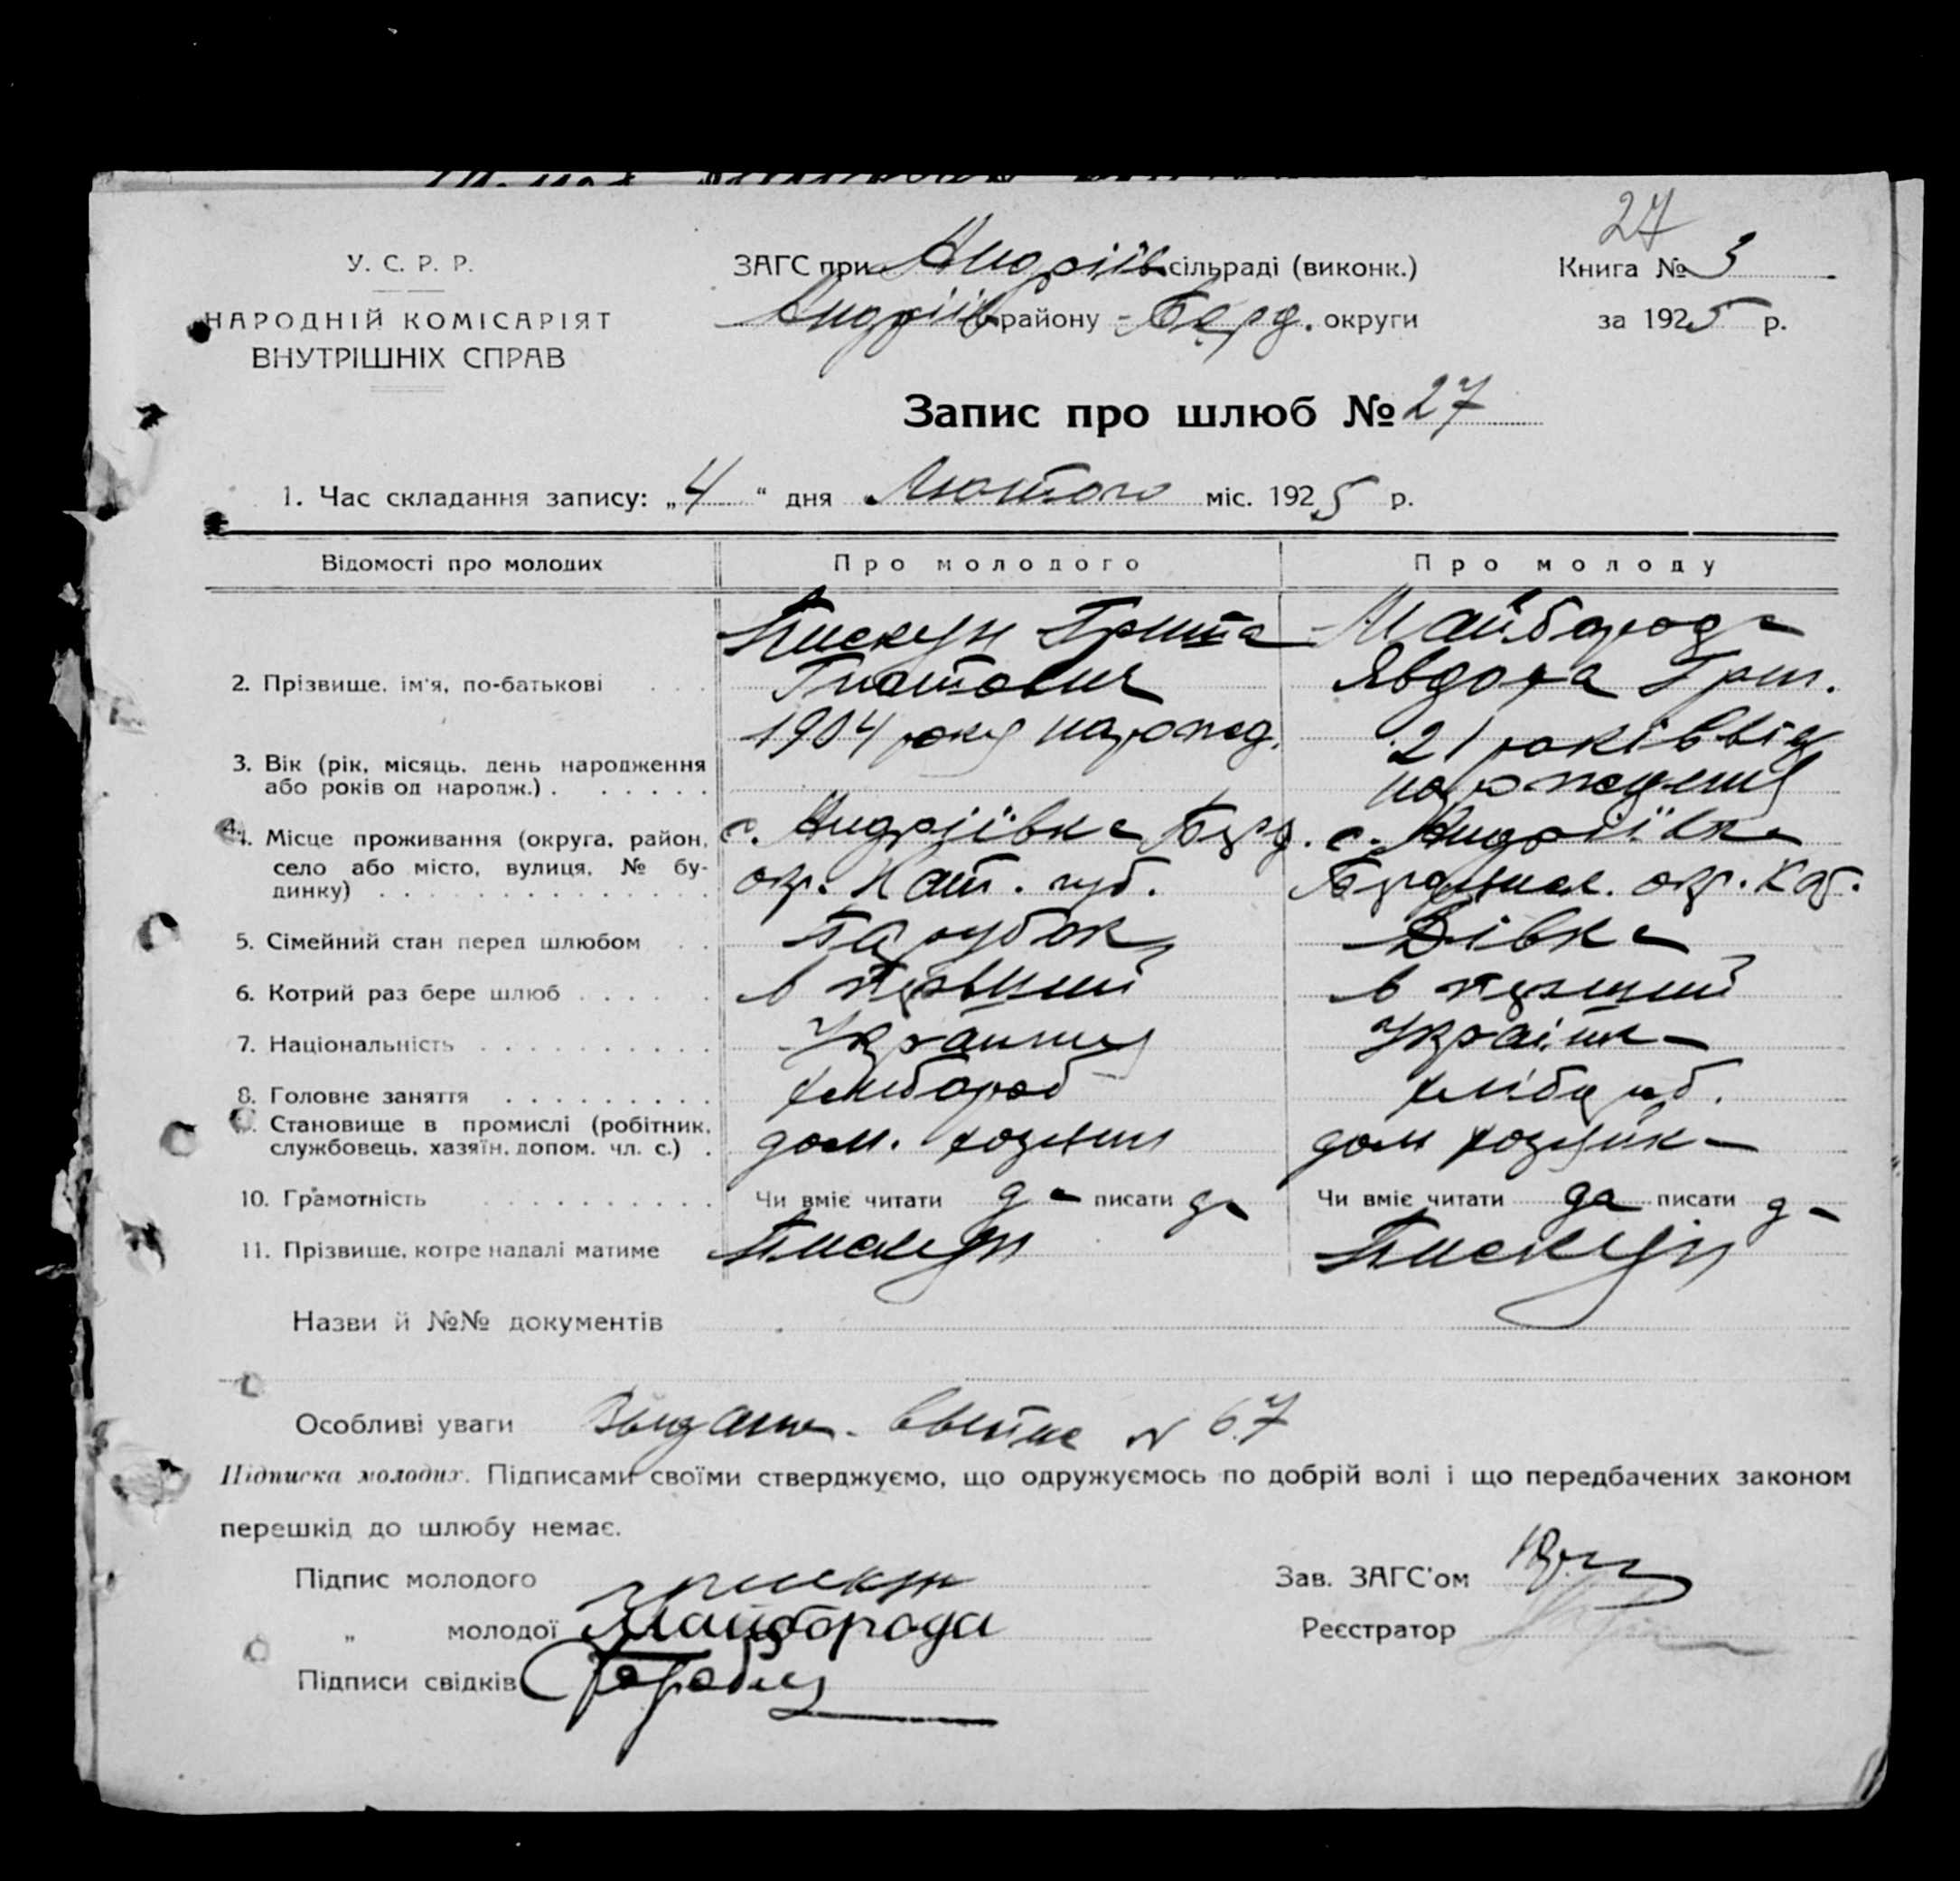 27
У. С. Р. Р.
НАРОДНІЙ КОМІСАРІЯТ
ВНУТРІШНІХ СПРАВ
ЗАГС при Андріїв сільраді (виконк.)
Андріїв району Берд. округи
Книга № 3
за 1925 р.
Запис про шлюб № 27
1. Час складання запису: „4" дня Лютого міс. 1925 р.
Відомості про молодих Про молодого Про молоду
2. Прізвище, ім'я, по-батькові
Пискун Гриша
Майборода
Явдоха Григ.
3. Вік (рік, місяць, день народження
або років од народж.)
1904 року нарожд.
21 років від
4. Місце проживання (округа, район,
село або місто, вулиця, № бу-
динку)
с. Андріївка Берд.
окр. Кат. губ.
с. Андріївка
Бердянск. окр. Кат.
5. Сімейний стан перед шлюбом Парубок Дівка
6. Котрий раз бере шлюб в первший в перший
7. Національність Українец Українка
8. Головне заняття хлибороб хлібороб.
9. Становище в промислі (робітник,
службовець, хазяїн, допом. чл. с.)
дом. хозяин
дом хозяйка
10. Грамотність Чи вміє читати да писати да Чи вміє читати да писати да
11. Прізвище, котре надалі матиме Пискун Пискун
Назви й №№ документів
Особливі уваги N 67
Підписка молодих. Підписами своїми стверджуємо, що одружуємось по добрій волі і що передбачених законом
перешкід до шлюбу немає.
Підпис молодого Пискун
„ молодої Майборода
Підписи свідків
Зав. ЗАГС'ом
Реєстратор